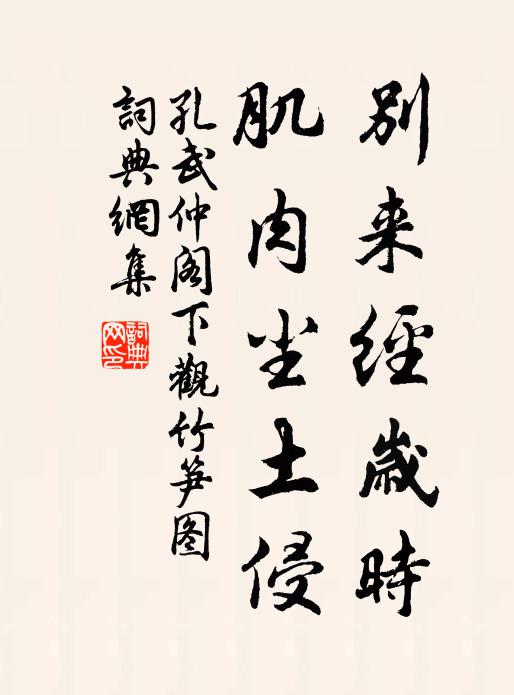 別来經歳時
肌肉尘土侵
孔武仲阁下觀竹笋图
詞典網集
詞典网印